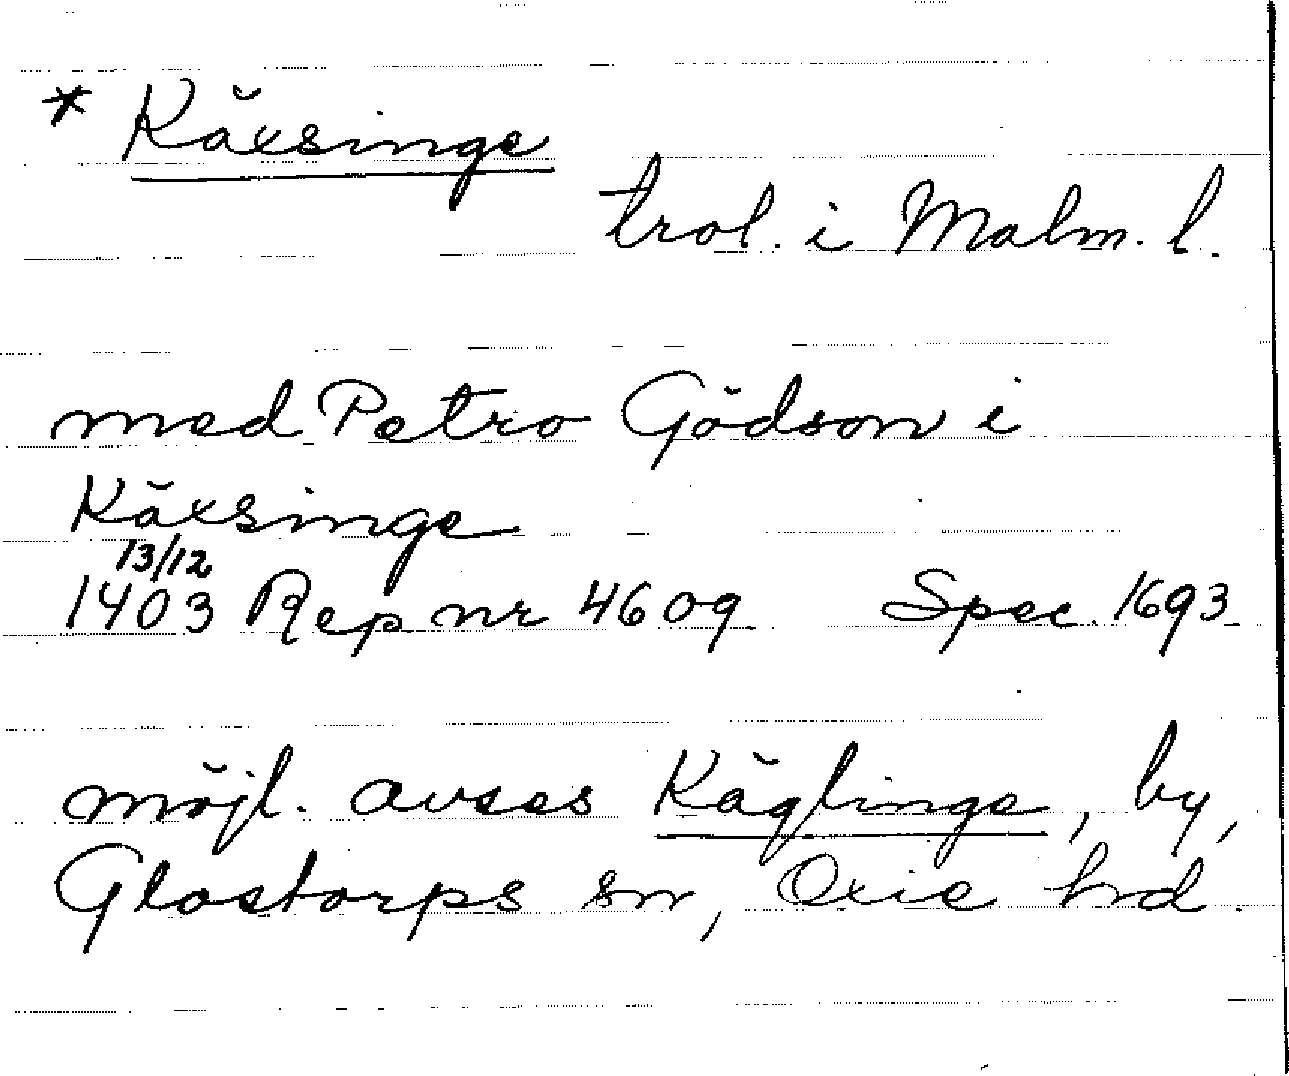 * Käxsinge
trol. i Malm. l.
med Petro Gödson i
Käxsinge
13/12
1403 Rep nr 4609 Spec. 1693
möjl. avses Käglinge, by,
Glostorps sn, Oxie hd.